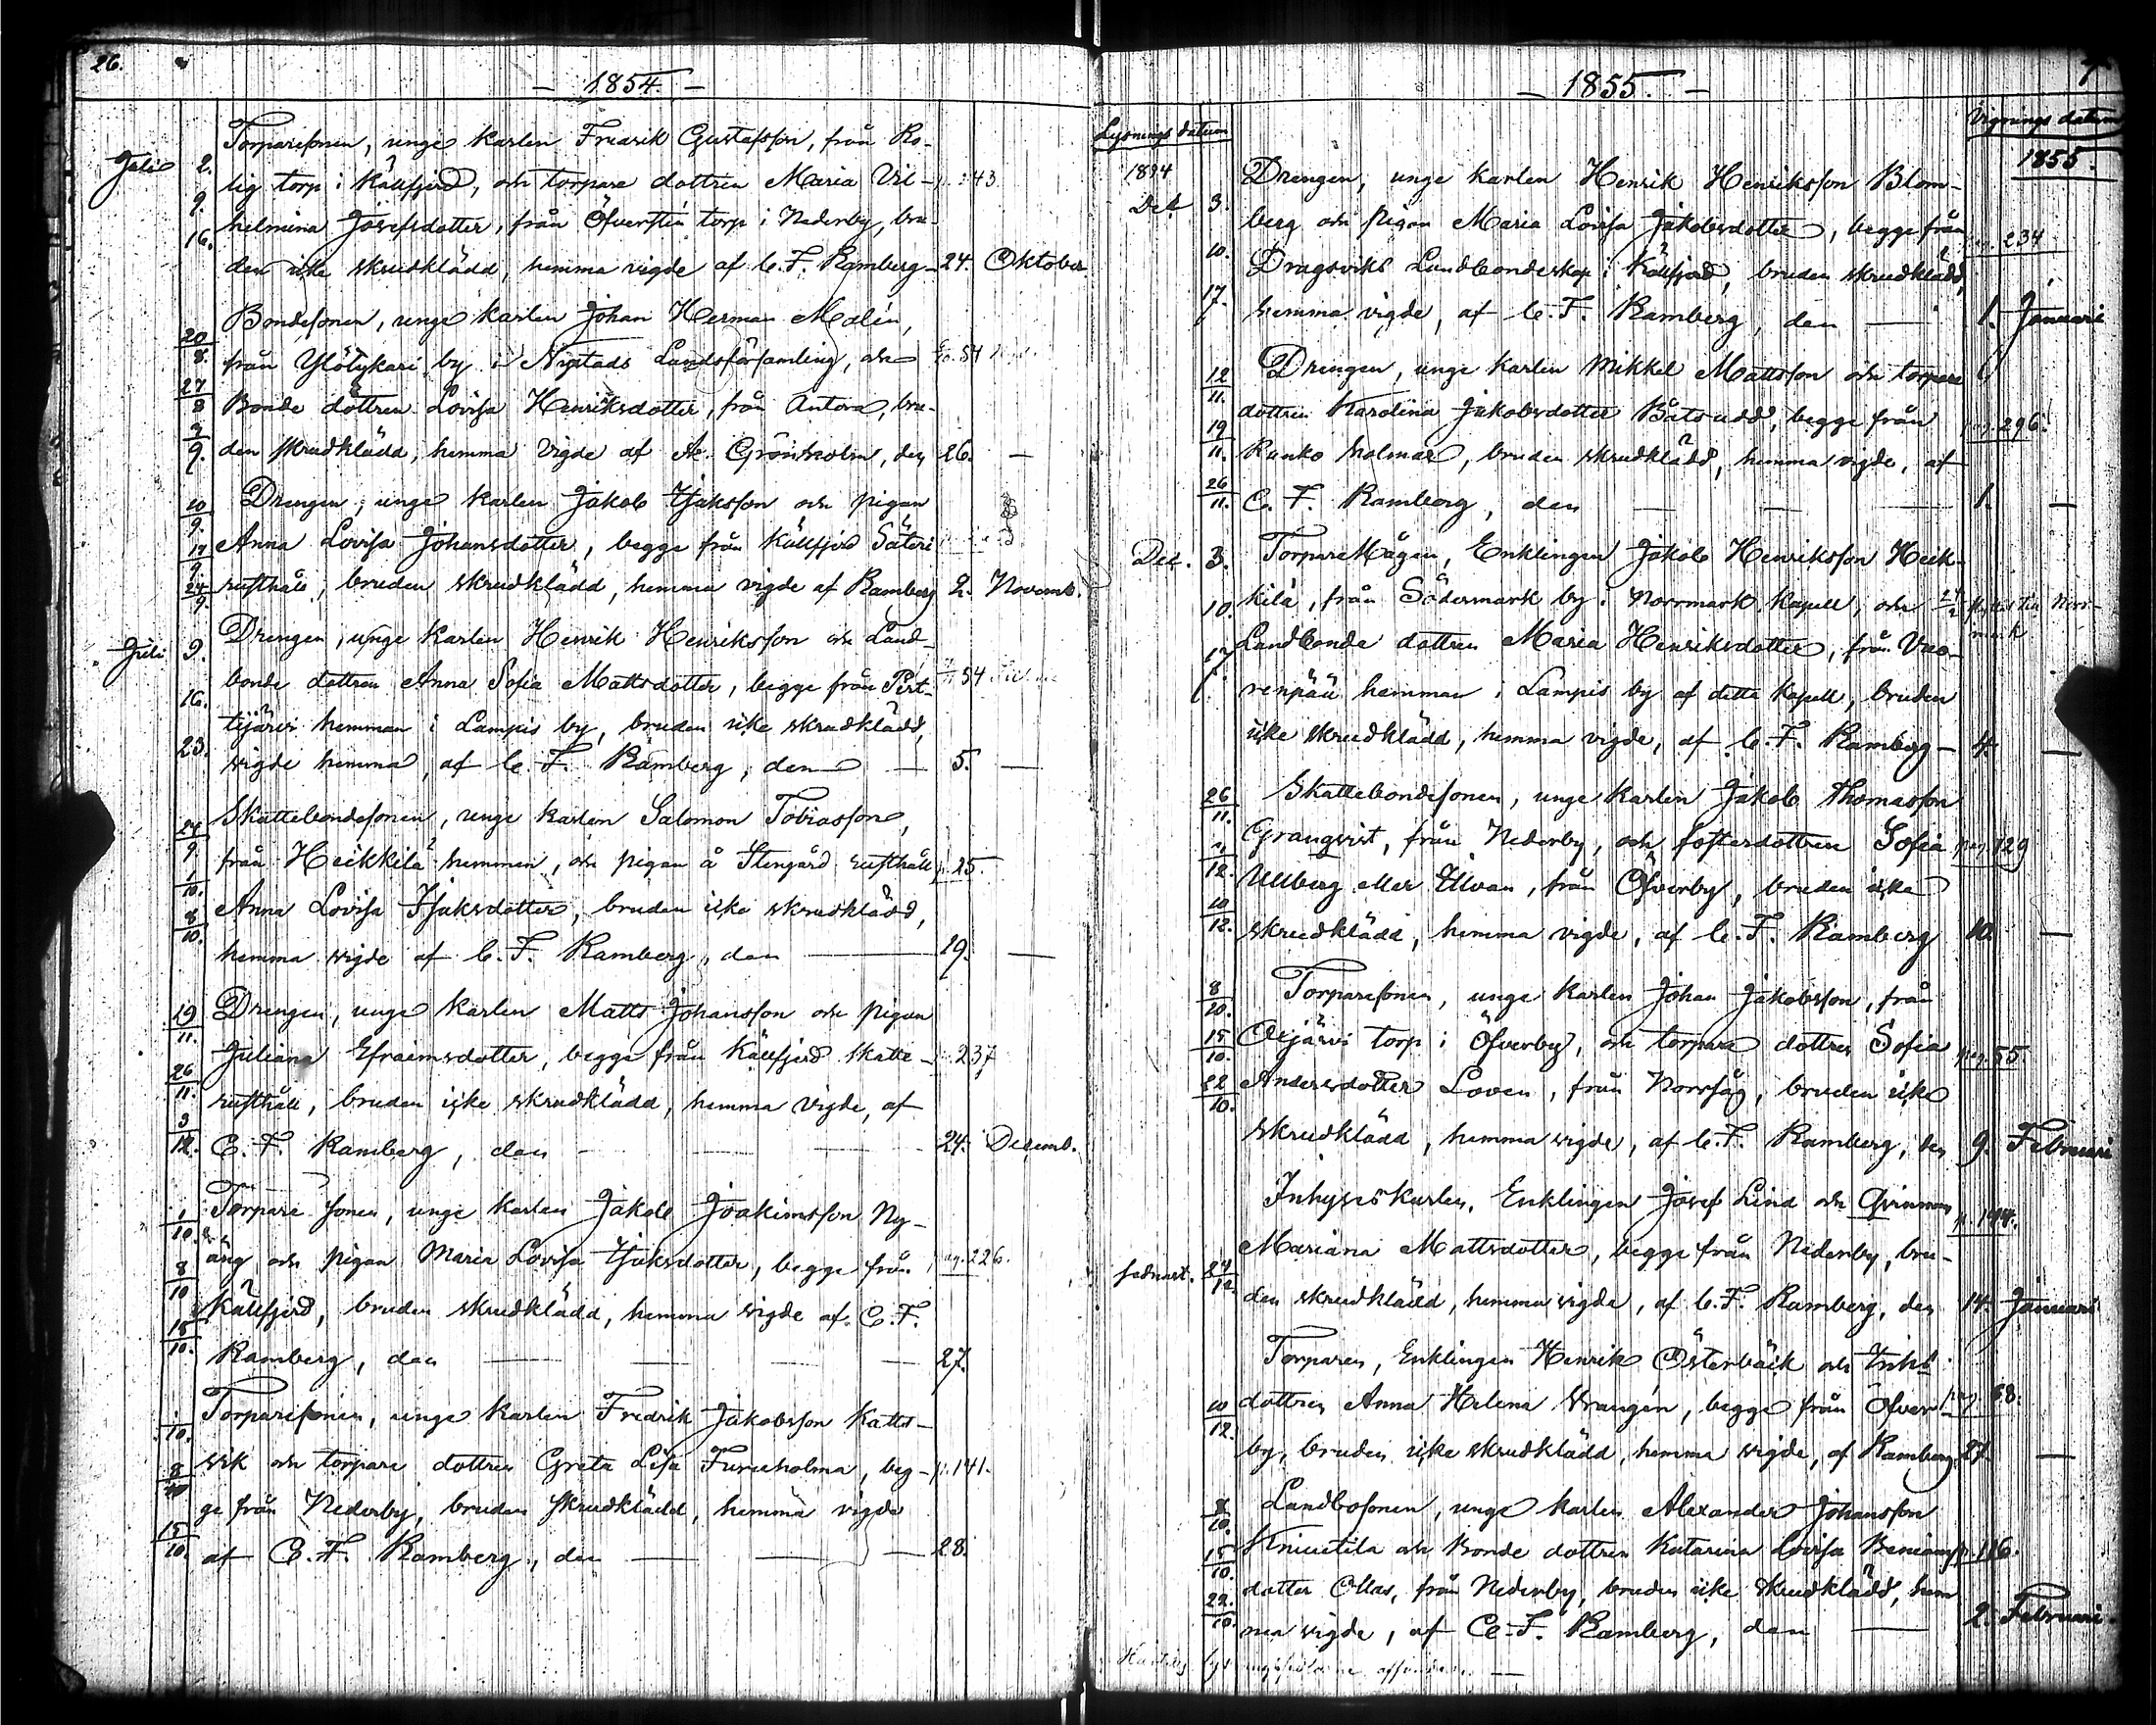 26.
— 1854. —
Torparesonen, unge karlen Fredrik Gustafsson, från Ro-
Juli 2. lig torp i Källfjerd, och torpare dottren Maria Vil- p. 143
9. helmina Josefsdotter, från Öfversti torp i Nederby, bru-
16. den icke skrudklädd, hemma vigde af C. F. Ramberg — 24. Oktober
Bondesonen, unge karlen Johan Herman Malin,
20/8. från Ylötykari by i Nystads Landsförsamling, och 54
27/8 Bonde dottren Lovisa Henriksdotter, från Antora, bru-
3/9. den skrudklädd, hemma vigde af A. Grönholm, den 26. —
10/9. Drengen, unge karlen Jakob Isaksson och pigan
17/9. Anna Lovisa Johansdotter, begge från Källfjerd Säteri
24/9. rusthåll, bruden skrudklädd, hemma vigde af Ramberg 2. Novemb.
Juli 9. Drengen, unge karlen Henrik Henriksson och Land-
16. bonde dottren Anna Sofia Mattsdotter, begge från Pert- 54
tijärvi hemman i Lampis by, bruden icke skrudklädd,
23. vigde hemma, af C. F. Ramberg, den — 5. —
24/9 Skattebondesonen, unge karlen Salomon Tobiasson,
1/10. från Heikkilä hemman, och pigan å Stengård rusthåll p. 25.
8/10. Anna Lovisa Isaksdotter, bruden icke skrudklädd,
hemma vigde af C. F. Ramberg, den — 19. —
19/11. Drengen, unge karlen Matts Johansson och pigan
26/11. Juliana Efraimsdotter, begge från Källfjerd Skatte- p. 237
rusthåll, bruden icke skrudklädd, hemma vigde, af
3/12. C. F. Ramberg, den — 24. Decemb.
1/10. Torpare sonen, unge karlen Jakob Joakimsson Ny-
8/10 äng och pigan Maria Lovisa Isaksdotter, begge från pag. 226.
15/10. Källfjerd, bruden skrudklädd, hemma vigde af C. F.
Ramberg, den — — — 27.
1/10. Torparesonen, unge karlen Fredrik Jakobsson Katts-
8/10 vik och torpare dottren Greta Lisa Furuholma, beg- p. 141.
ge från Nederby, bruden skrudklädd, hemma vigde
15/10. af C. F. Ramberg, den — — — 28.
— 1855. —
Lysnings datum
Vignings datum
1855.
1854 Drengen, unge karlen Henrik Henriksson Blom-
Dec 3. berg och pigan Maria Lovisa Jakobsdotter, begge från pag. 234
10. Dragsviks Landbondeskap i Källfjerd, bruden skrudklädd,
17. hemma vigde, af C. F. Ramberg, den — 1. Januari
12/11. Drengen, unge karlen Mikkel Mattsson och torpare
19/11. dottren Karolina Jakobsdotter Båtsudd, begge från pag. 296.
Runko holmar, bruden skrudklädd, hemma vigde, af
26/11. C. F. Ramberg, den — — — 1. —
Dec. 3. TorpareMågen, Enklingen Jakob Henriksson Heik-
10. kilä, från Södermark by i Norrmark Kapell, och flyttat till Norr-
mark
17 Landbonde dottren Maria Henriksdotter, från Vuo-
renpää hemman i Lampis by af detta Kapell, bruden
icke skrudklädd, hemma vigde, af C. F. Ramberg — 4. —
26/11. Skattebondesonen, unge karlen Jakob Thomasson
Granqvist, från Nederby, och fosterdottren Sofia pag 129
12. Ullberg eller Ulvan, från Öfverby, bruden icke
10/12. skrudklädd, hemma vigde, af C. F. Ramberg 10. —
8/10. Torparesonen, unge karlen Johan Jakobsson, från
15/10. Oxjärvi torp i Öfverby, och torpare dottren Sofia pag. 55
22/10. Andersdotter Loven, från Norrsåg, bruden icke
skrudklädd, hemma vigde, af C. F. Ramberg, den 9. Februari
Inhyseskarlen, Enklingen Josef Lind och Qvinnan p. 144.
Mariana Mattsdotter, begge från Nederby, bru-
24/12. den skrudklädd, hemma vigde, af C. F. Ramberg, den 14. Januari
Torparen, Enklingen Henrik Österbäck och Inhs
10/12. dottren Anna Helena Vrangén, begge från Öfver- pag 68.
by, bruden icke skrudklädd, hemma vigde, af Ramberg, 27. —
8/10. Landbosonen, unge karlen Alexander Johansson
15/10. Knuutila och Bonde dottren Katarina Lovisa Beniams p. 116.
22./10. dotter Ollas, från Nederby, bruden icke skrudklädd, hem
ma vigde, af C. F. Ramberg, den — 2. Februari.